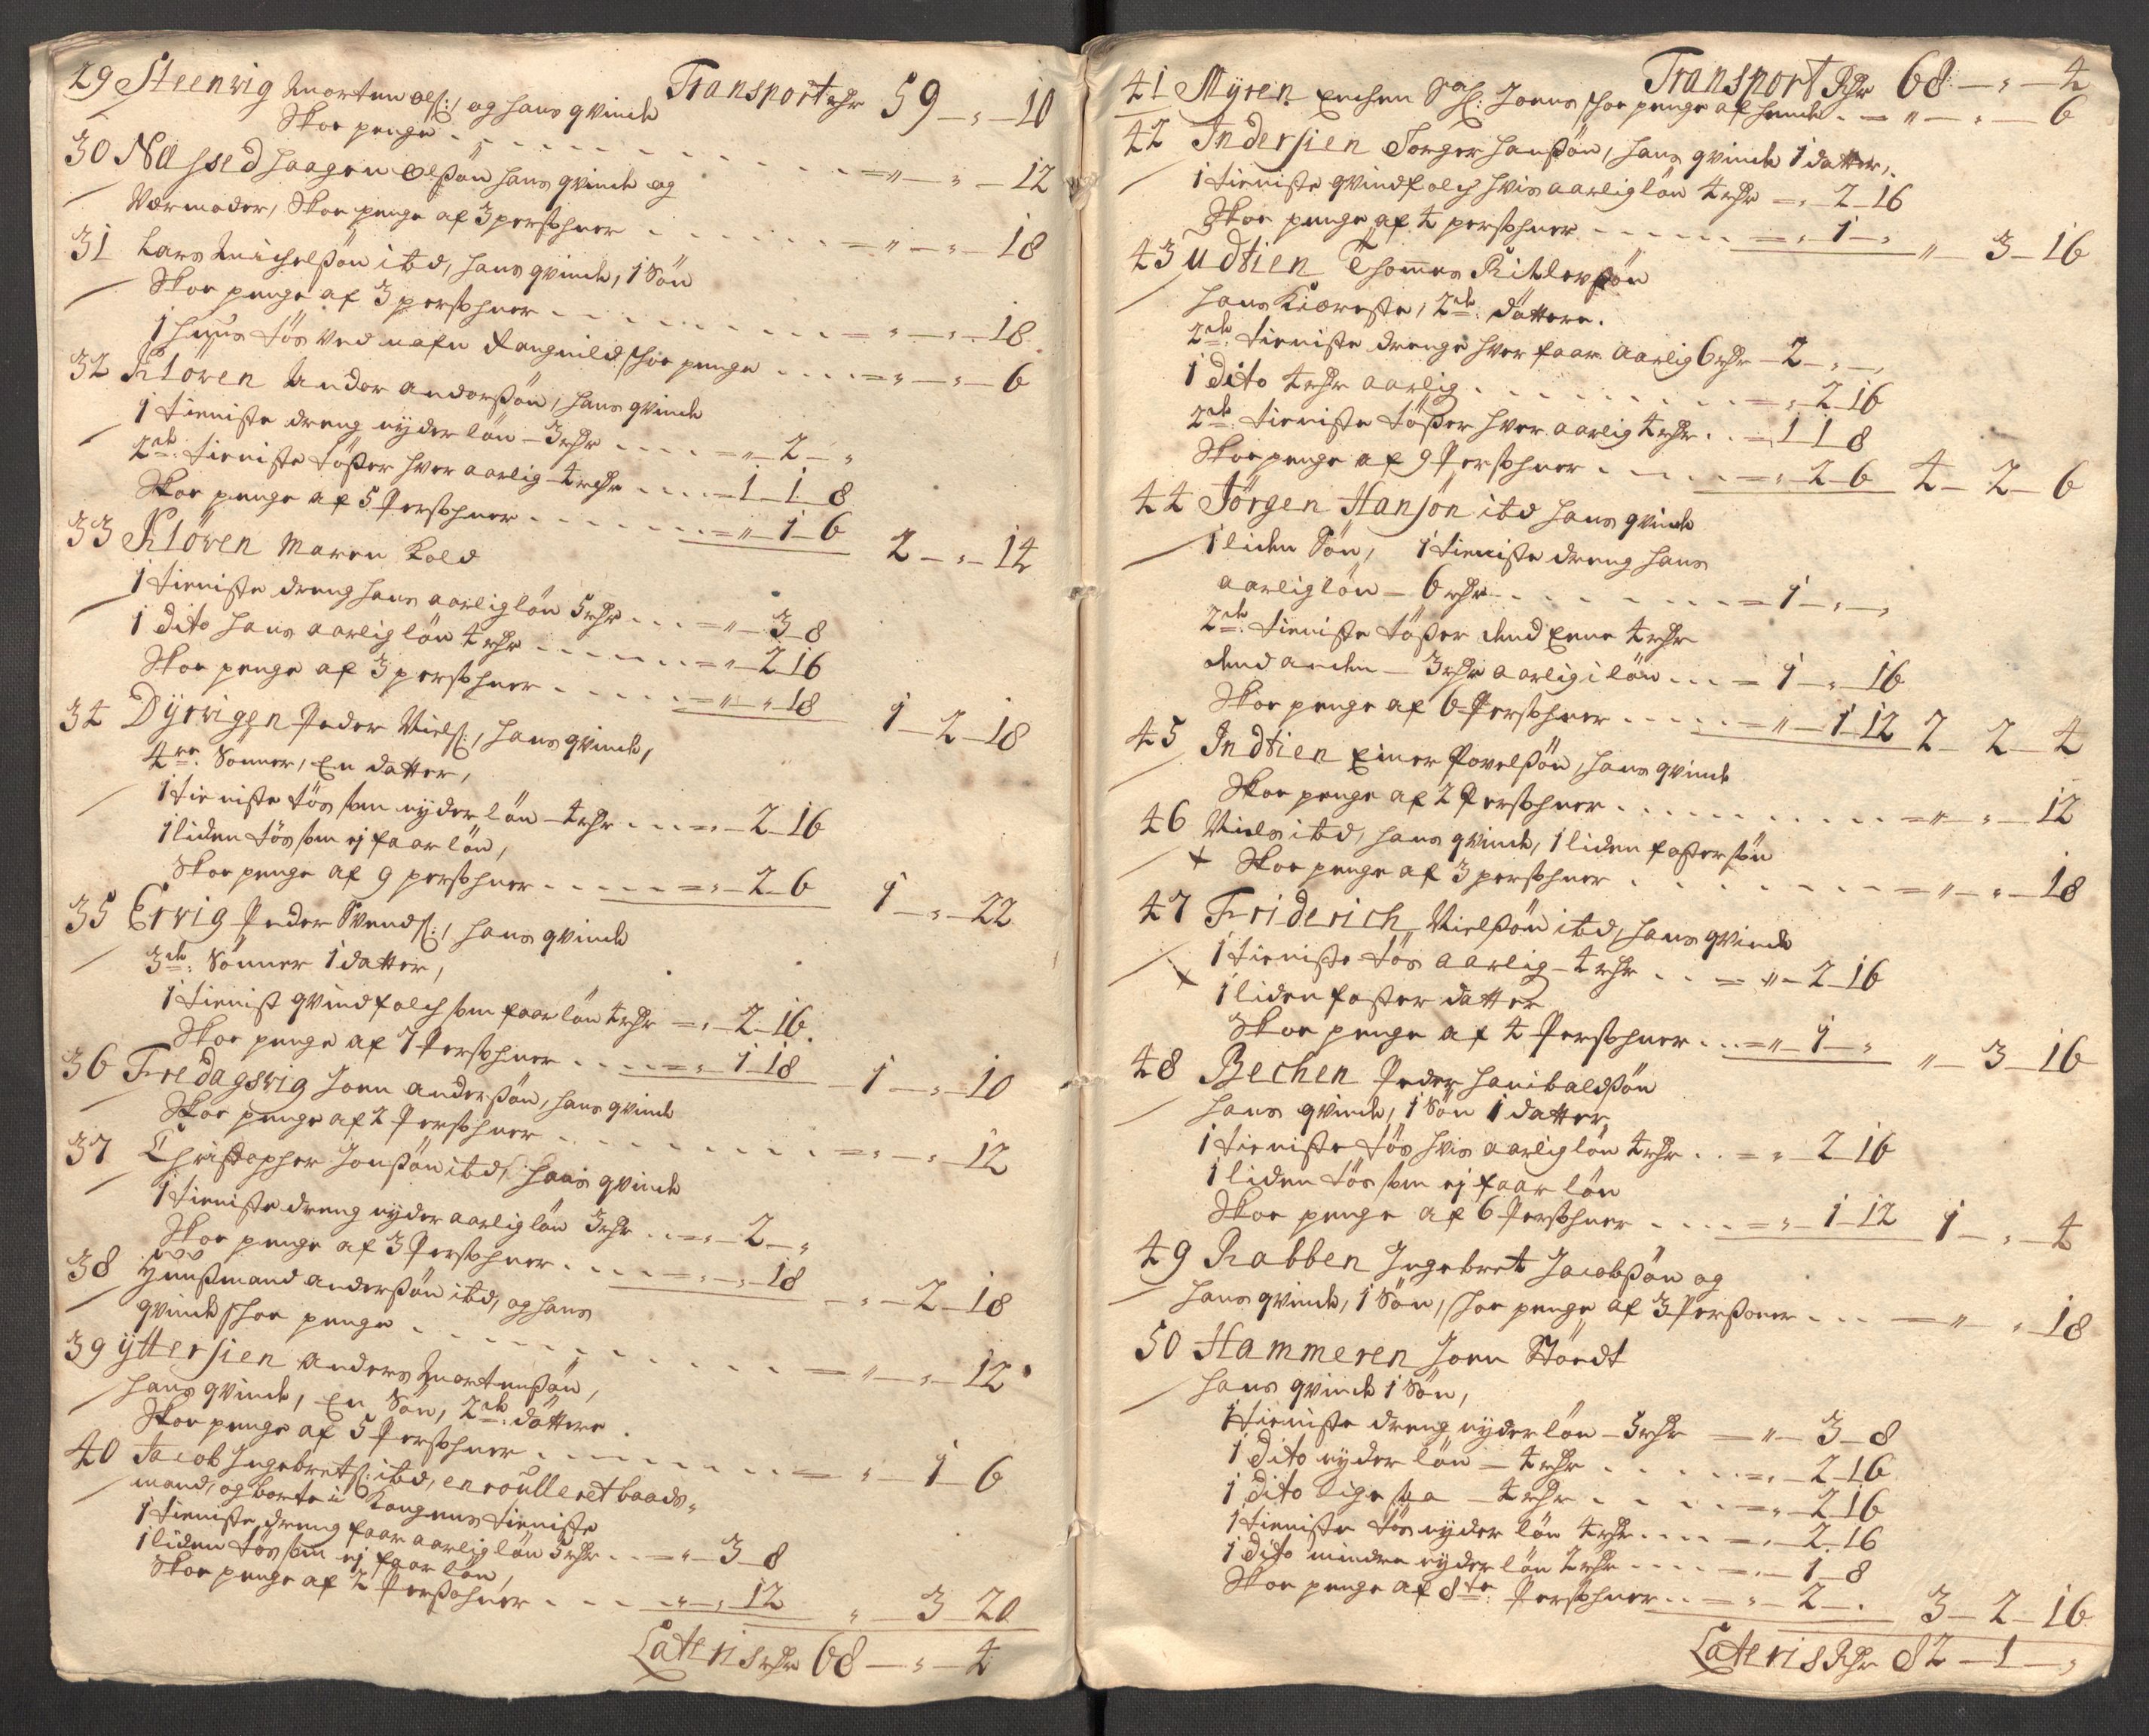 Transport rdr 59 — „ — 10
29 Steenvig Morten ols: / og hans qvinde
Skoe penge . . . . . = „ — „ — 12
30 Næssed Haagen Olssøn hans qvinde og
Værmoder, Skoe penge af 3 persohner . . . = „ — „ — 18
31 Lars Michelssøn ibd, hans qvinde, 1 Søn
Skoe penge af 3 persohner . . . . = „ — „ — 18
1 huus tøs ved nafn Rangnild skoe penge . . . . = „ — „ — 6
32 Kløven Ander Anderssøn, hans qvinde
1 tieniste dreng nyder løn — 3 rdr . . . . = „ — 2 — „
2de: tieniste tøsser hver aarlig 4 rdr . . . . = 1 — 1 — 8
Skoe penge af 5 Persohner . . . . . = „ — 1 — 6 2 — „ — 14
33 Kløven Maren Kold
1 tieniste dreng hans aarlig løn 5 rdr . . . = „ — 3 — 8
1 dito hans aarlig løn 4 rdr . . . . . = „ — 2 16
Skoe penge af 3 persohner . . . . . = „ — „ 18 1 — 2 — 18
34 Dyrvigen Peder Niels: / hans qvinde,
4re: Sønner, En datter,
1 tieniste tøs som nyder løn — 4 rdr . . . = „ — 2 — 16
1 liden tøs som ej faar løn,
Skoe penge af 9 persohner . . . . . = „ — 2 — 6 1 — „ — 22
35 Ervig Peder Svends: / hans qvinde
3de: Sønner 1 datter,
1 tienist qvindfolch som faar løn 4 rdr = „ — 2 — 16.
Skoe penge af 7 Persohner . . . . = „ 1 18 1 — „ — 10
36 Fredagsvig Joen Anderssøn, hans qvinde
Skoe penge af 2 Persohner . . . . . = „ — „ 12
37 Christopher Jonssøn ibd / hans qvinde
1 tieniste dreng nyder aarlig løn 3 rdr . . = „ — 2 — „
Skoe penge af 3 Persohner . . . . . = „ — „ 18 „ — 2 — 18
38 Huussmand Anderssøn ibd, og hans
qvinde skoe penge . . . . . . = „ — „ — 12
39 Yttersien Anders Mortenssøn,
hans qvinde, En Søn, 2de: døttere
Skoe penge af 5 Persohner . . . . . = „ — 1 — 6
40 Jacob Ingebrets: ibd, enroulleret baads-
mand, og borte i Kongens tieniste
1 tieniste dreng faar aarlig løn 5 rdr . . = „ — 3 — 8
1 liden tøs som ej faar løn,
Skoe penge af 2 Persohner . . . . . „ — „ 12 „ — 3 — 20
Lateris rdr 68 — „ — 4
Transport Rdr 68 — „ — 4
41 Myren Enchen Sal: Joens skoe penge af hende . = „ — „ — 6
42 Indersien Torger Hanssøn, hans qvinde 1 datter,
1 tieniste qvindfolch hvis aarlig løn 4 rdr = „ 2 — 16
Skoe penge af 4 persohner . . . . . = „ 1 — „ „ — 3 — 16
43 Udtien Thommes Ritlerssøn
hans Kiæreste, 2de: døttere.
2de: tieniste drenge hver faar aarlig 6 rdr — 2 — „ — „
1 dito 4 rdr aarlig . . . . . . = „ 2 16
2de: tieniste tøsser hver aarlig 4 rdr . . = 1 1 8
Skoe penge af 9 Persohner . . . . = „ 2 — 6 4 — 2 — 6
44 Jørgen Hansøn ibd hans qvinde
1 liden Søn, 1 tieniste dreng hans
aarlig løn — 6 rdr . . . . . . = 1 — „ — „
2de: tieniste tøsser dend Eene 4 rdr
dend anden — 3 rdr aarlig i løn . . . = 1 — „ 16
Skoe penge af 6 Persohner . . . . . = „ — 1 12 2 — 2 — 4
45 Indtien Einer Povelssøn, hans qvinde
Skoe penge af 2 Persohner . . . . . = „ — „ — 12
46 Niels ibd, hans qvinde, 1 liden fostersøn
× Skoe penge af 3 persohner . . . . . = „ — „ — 18
47 Friderich Nielssøn ibd, hans qvinde
1 tieniste tøs aarlig — 4 rdr . . . = „ — 2 — 16
× 1 liden foster datter
Skoe penge af 4 Persohner . . . = „ — 1 — „ „ — 3 — 16
48 Bechen Peder Hanibalssøn
hans qvinde, 1 Søn 1 datter,
1 tieniste tøs hvis aarlig løn 4 rdr . . = „ 2 16
1 liden tøs som ej faar løn
Skoe penge af 6 Persohner . . . . = „ — 1 — 12 1 — „ — 4
49 Rabben Ingebret Jacobssøn og
hans qvinde, 1 Søn, skoe penge af 3 Personer . . . — „ — „ 18
50 Hammeren Joen Stördt
hans qvinde 1 Søn,
1 tieniste dreng nyder løn — 5 rdr — „ — 3 — 8
1 dito nyder løn — 4 rdr . . . . . = „ — 2 16
1 dito lige saa — 4 rdr . . . . . = „ — 2 16
1 tieniste tøs nyder løn 4 rdr . . . . = „ — 2 16
1 dito mindre nyder løn 2 rdr . . . . = „ — 1 — 8
Skoe penge af 8te: Persohner . . = „ — 2 — „ 3 — 2 — 16
Lateris Rdr 82 — 1 — „